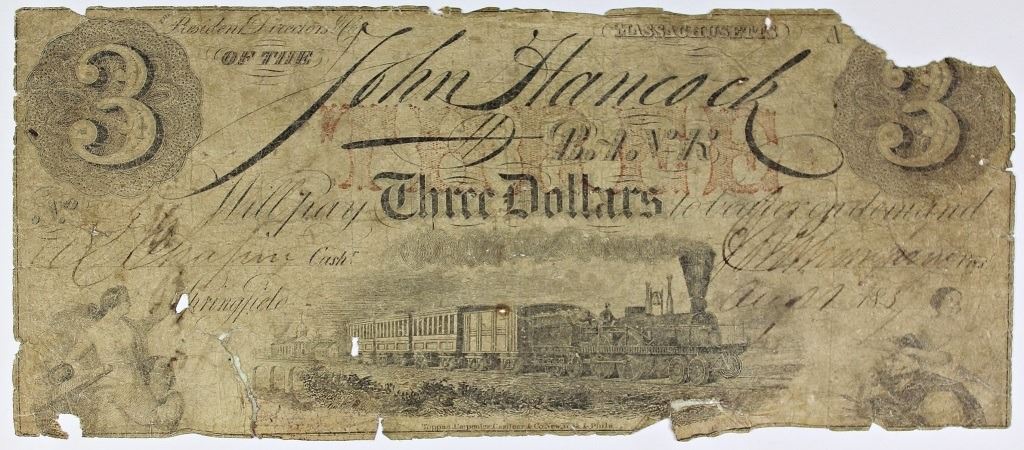 President Directors & Co. MASSACHUSETTS A
3 OF THE John Hancock 3
THREE
BANK
Will pay Three Dollars to bearer on demand
No
Chapin Cash.r
Springfield Aug 185
Toppan, Carpenter, Casilear & Co. New York & Phila.